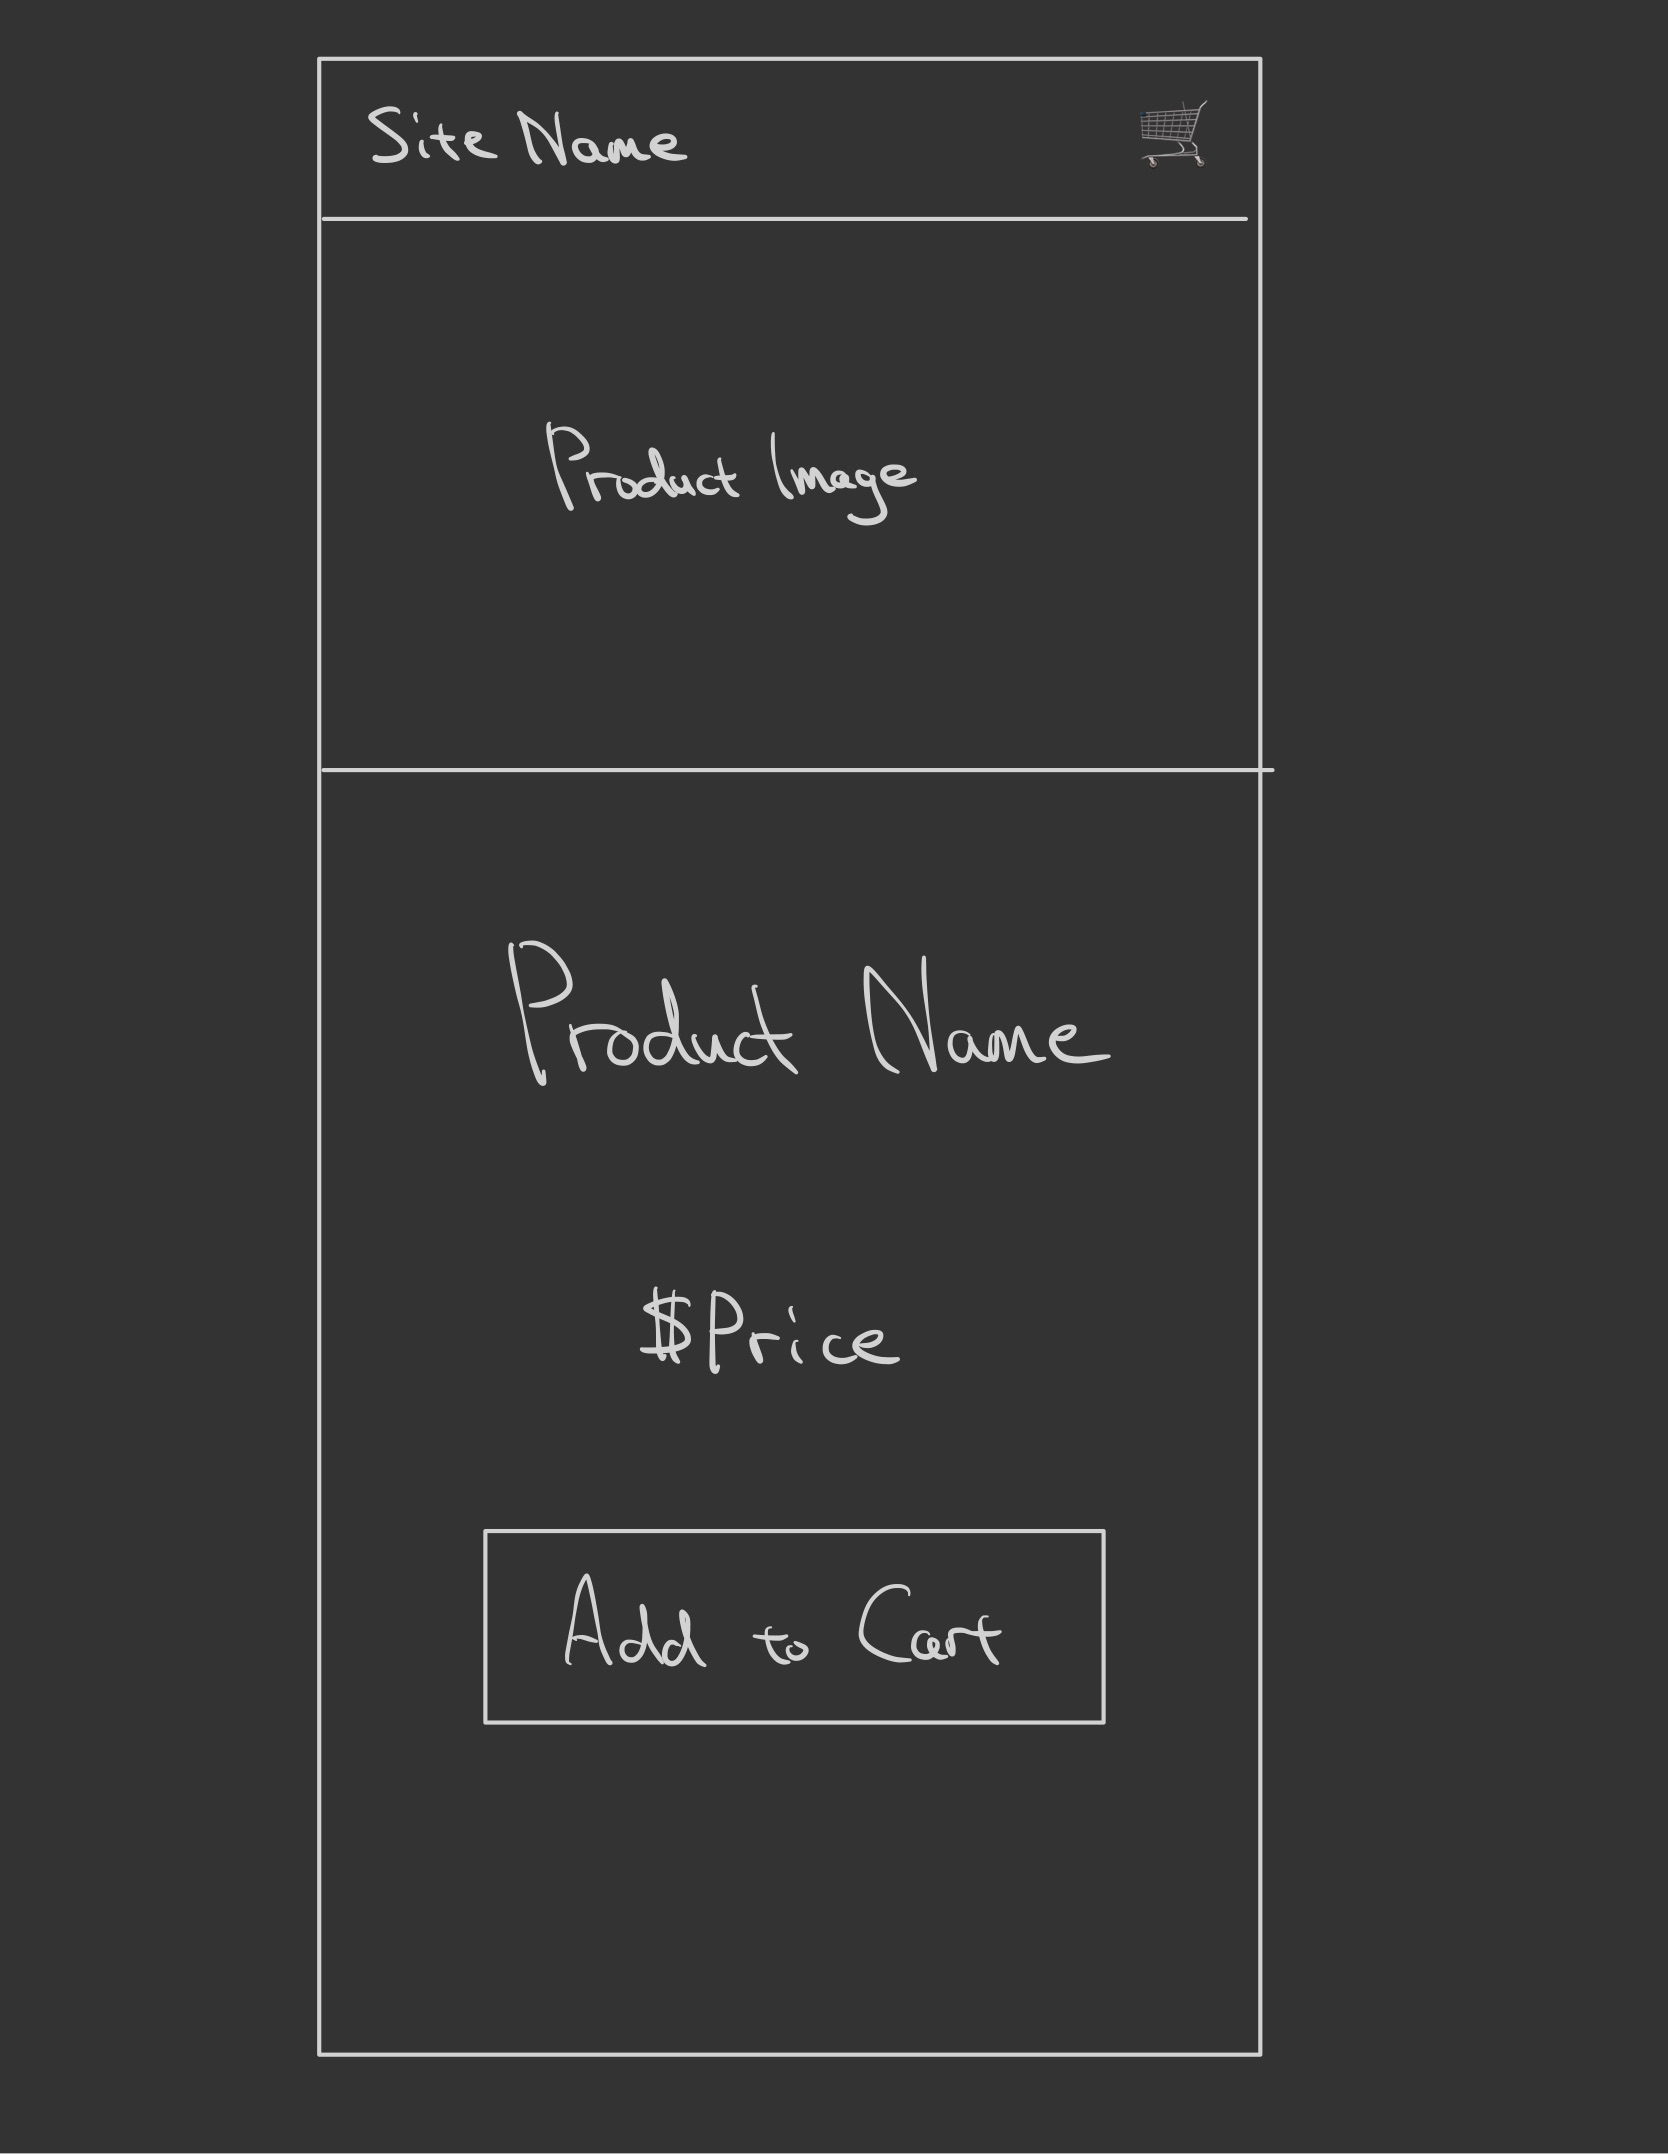 Site Name
Product Image
Product Name
$Price
Add to Cart